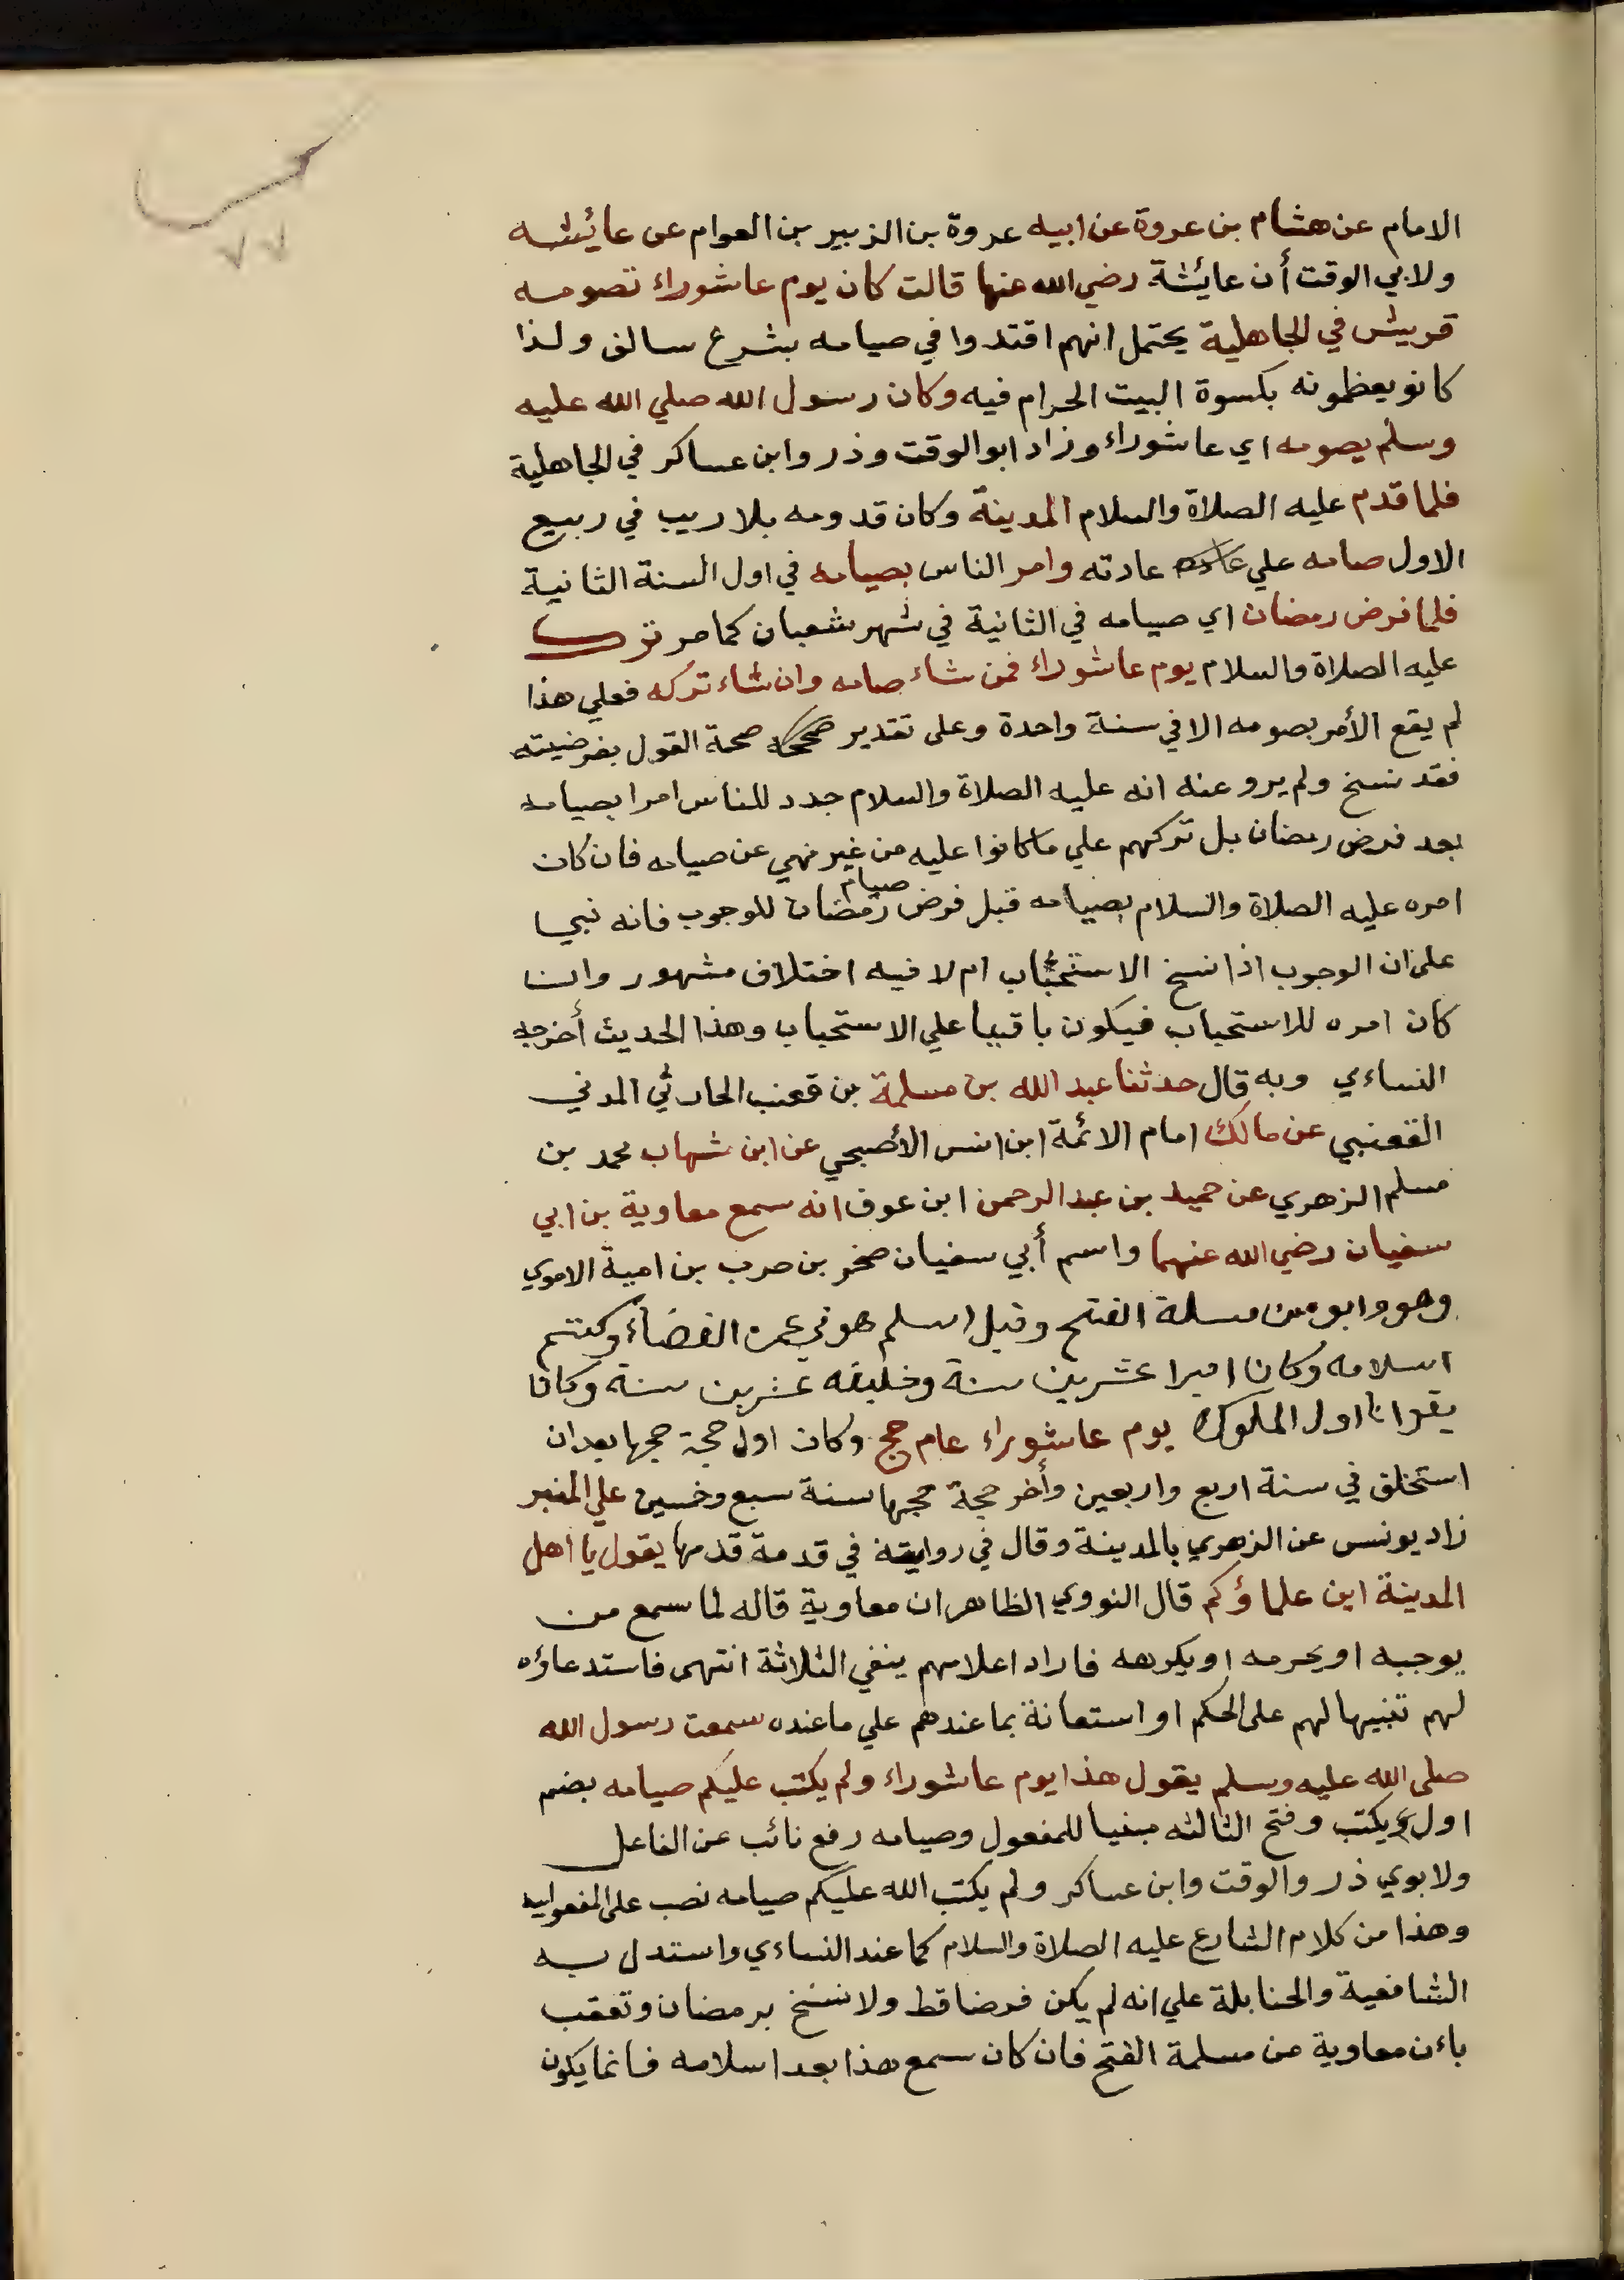 الامام عن هشام بن عروة عن ابيه عروة بن الزبير بن العوام عن عائيشه
ولابي الوقت أن عائيشة رضي الله عنها قالت كان يوم عاشوراء تصومه
قريش في الجاهلية يحتمل انهم اقتدوا في صيامه بشرع سالف ولذا
كانو يعظمونه بكسوة البيت الحرام فيه وكان رسول الله صلي الله عليه
وسلم يصومه اي عاشوراء وزاد ابو الوقت وذر وابن عساكر في الجاهلية
فلما قدم عليه الصلاة والسلام المدينة وكان قدومه بلا ريب في ربيع
الاول صامه علي عادته وامر الناس بصيامه في اول السنة الثانية
فلما فرض رمضان اي صيامه في الثانية في شهر شعبان كما مر ترك
عليه الصلاة والسلام يوم عاشوراء فمن شاء صامه وان شاء تركه فعلي هذا
لم يقع الأمر بصومه الا في سنة واحدة وعلى تقدير صحة القول بفرضيته
فقد نسخ ولم يرو عنه انه عليه الصلاة والسلام جدد للناس امرا بصيامه
بعد فرض رمضان بل تركهم علي ما كانوا عليه من غير نهي عن صيامه فان كان
امره عليه الصلاة والسلام بصيامه قبل فرض صيام رمضان للوجوب فانه نبي
على ان الوجوب اذا نسخ الاستحباب ام لا فيه اختلاف مشهور وان
كان امره للاستحباب فيكون باقيا علي الاستحباب وهذا الحديث أخرجه
النساءي وبه قال حدثنا عبد الله بن مسلمة بن قعنب الحارثي المدني
القعنبي عن مالك امام الائمة ابن انس الأصبحي عن ابن شهاب محمد بن
مسلم الزهري عن حميد بن عبد الرحمن ابن عوف انه سمع معاوية بن ابي
سفيان رضي الله عنهما واسم أبي سفيان صخر بن حرب بن امية الاموي
وهو وابو من مسلة الفتح وقيل اسلم هو في عمرة القضاء وكتم
اسلامه وكان اميرا عشرين سنة وخليفه عشرين سنة وكان
يقول انا اول الملوك يوم عاشوراء عام حج وكان اول حجة حجها بعد ان
استخلف في سنة اربع واربعين وأخر حجة حجها سنة سبع وخمسين علي المنبر
زاد يونس عن الزهري بالمدينة وقال في روايته في قدمة قدمها يقول يا اهل
المدينة اين علماؤكم قال النووي الظاهر ان معاوية قاله لما سمع من
يوجبه او يحرمه او يكرهه فاراد اعلامهم ينفي الثلاثة انتهى فاستدعاؤه
لهم تنبيها لهم على الحكم او استعانة بما عندهم علي ما عنده سمعت رسول الله
صلى الله عليه وسلم يقول هذا يوم عاشوراء ولم يكتب عليكم صيامه بضم
اول يكتب وفتح الثالثه مبنيا للمفعول وصيامه رفع نائب عن الفاعل
ولابوي ذر والوقت وابن عساكر ولم يكتب الله عليكم صيامه نصب على المفعوليه
وهذا من كلام الشارع عليه الصلاة والسلام كما عند النساءي واستدل به
الشافعية والحنابلة علي انه لم يكن فرضا قط ولا نسخ برمضان وتعقب
باءن معاوية من مسلمة الفتح فان كان سمع هذا بعد اسلامه فانما يكون